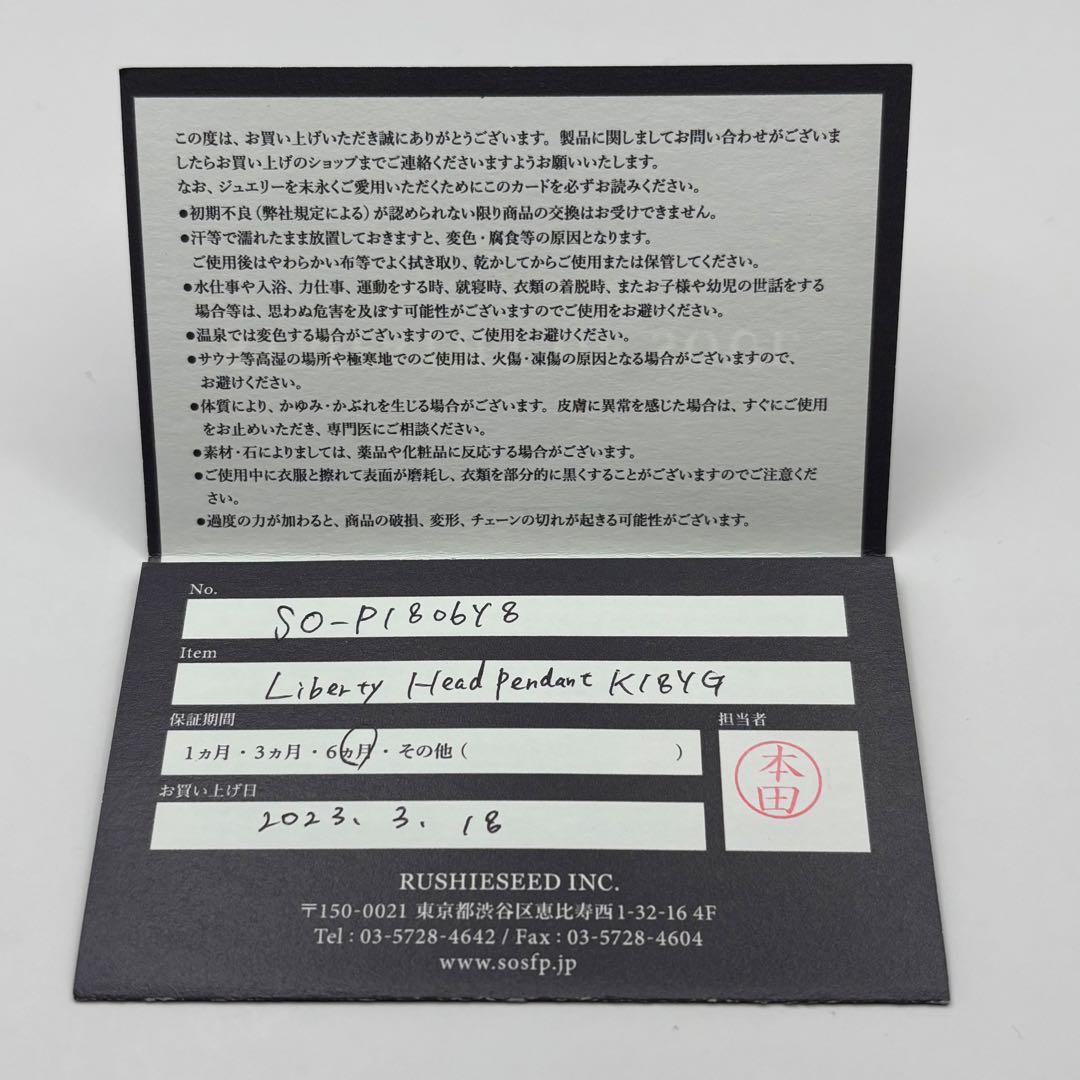 この度は、お買い上げいただき誠にありがとうございます。製品に関しましてお問い合わせがございま
したらお買い上げのショップまでご連絡くださいますようお願いいたします。
なお、ジュエリーを末永くご愛用いただくためにこのカードを必ずお読みください。
●初期不良（弊社規定による）が認められない限り商品の交換はお受けできません。
●汗等で濡れたまま放置しておきますと、変色・腐食等の原因となります。
ご使用後はやわらかい布等でよく拭き取り、乾かしてからご使用または保管してください。
●水仕事や入浴、力仕事、運動をする時、就寝時、衣類の着脱時、またお子様や幼児の世話をする
場合等は、思わぬ危害を及ぼす可能性がございますのでご使用をお避けください。
●温泉では変色する場合がございますので、ご使用をお避けください。
●サウナ等高湿の場所や極寒地でのご使用は、火傷・凍傷の原因となる場合がございますので、
お避けください。
●体質により、かゆみ・かぶれを生じる場合がございます。皮膚に異常を感じた場合は、すぐにご使用
をお止めいただき、専門医にご相談ください。
●素材・石によりましては、薬品や化粧品に反応する場合がございます。
●ご使用中に衣服と擦れて表面が磨耗し、衣類を部分的に黒くすることがございますのでご注意くだ
さい。
●過度の力が加わると、商品の破損、変形、チェーンの切れが起きる可能性がございます。
No.
SO-P1806Y8
Item
Liberty Head Pendant K18YG
保証期間
担当者
1ヵ月・3ヵ月・6ヵ月・その他（ ）
本田
お買い上げ日
2023. 3. 18
RUSHIESEED INC.
〒150-0021 東京都渋谷区恵比寿西1-32-16 4F
Tel : 03-5728-4642 / Fax : 03-5728-4604
www.sosfp.jp